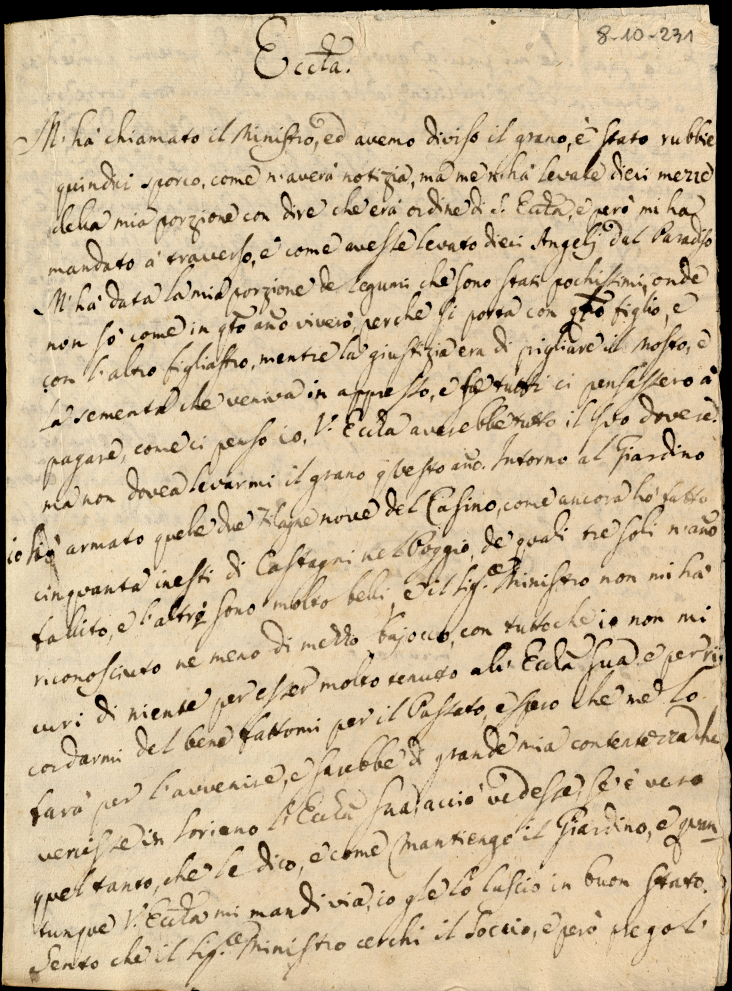 8-10-231
Eccza.
M'ha chiamato il Ministro, ed avemo diviso il grano, è stato rubbie
quindici sporco, come n'averà notizia, ma me n'ha levate dieci mezze
della mia porzione con dire che era ordine di S. Eccza, e però mi ha
mandato à traverso, e come avesse levato dieci Angeli dal Paradiso
M'ha data la mia porzione de legumi che sono stati pochissimi, onde
non sò come in qto año viverò, perche si porta con qto figlio, e
con l'altro figliastro, mentre la giustizia era di pigliare il mosto, e
la sementa che veniva in appresso, e se tutti ci pensassero à
pagare, come ci penso io, V. Eccza averebbe tutto il suo dovere,
ma non dovea levarmi il grano questo año. Intorno al Giardino
io hò armato quele due nove del Casino, come ancora hò fatto
cinquanta inesti di Castagni nel Poggio, de quali tre soli n'año
fallito, e l'altri sono molto belli e il Sig.re Ministro non mi hà
riconosciuto ne meno di mezzo bajocco, con tutto che io non mi
curi di niente per esser molto tenuto all' Eccza Sua e per ri
cordarmi del bene fattomi per il Passato, e spero che me lo
farà per l'avvenire, e sarebbe di grande mia contentezza che
venisse in Soriano l'Eccza Sua, acciò vedesse, se è vero
quel tanto, che le dico, e come mantengo il Giardino, e quan
tunque V. Eccza mi mandi via, io gle lò lascio in buon stato.
Sento che il Sig.re Ministro cerchi il Soccio, e però prego l'